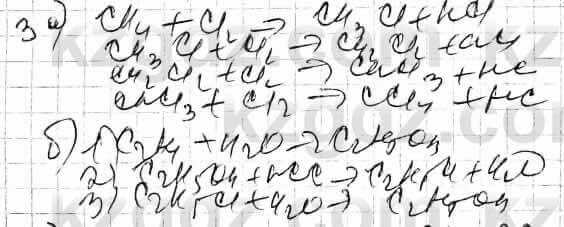 3 а) CH₄ + Cl₂ → CH₃Cl + HCl
CH₃Cl + Cl₂ → CH₂Cl₂ + HCl
CH₂Cl₂ + Cl₂ → CHCl₃ + HC
CHCl₃ + Cl₂ → CCl₄ + HC
б) 1) C₂H₄ + H₂O → C₂H₅OH
2) C₂H₅OH + HCl → C₂H₅Cl + H₂O
3) C₂H₅Cl + H₂O → C₂H₅OH